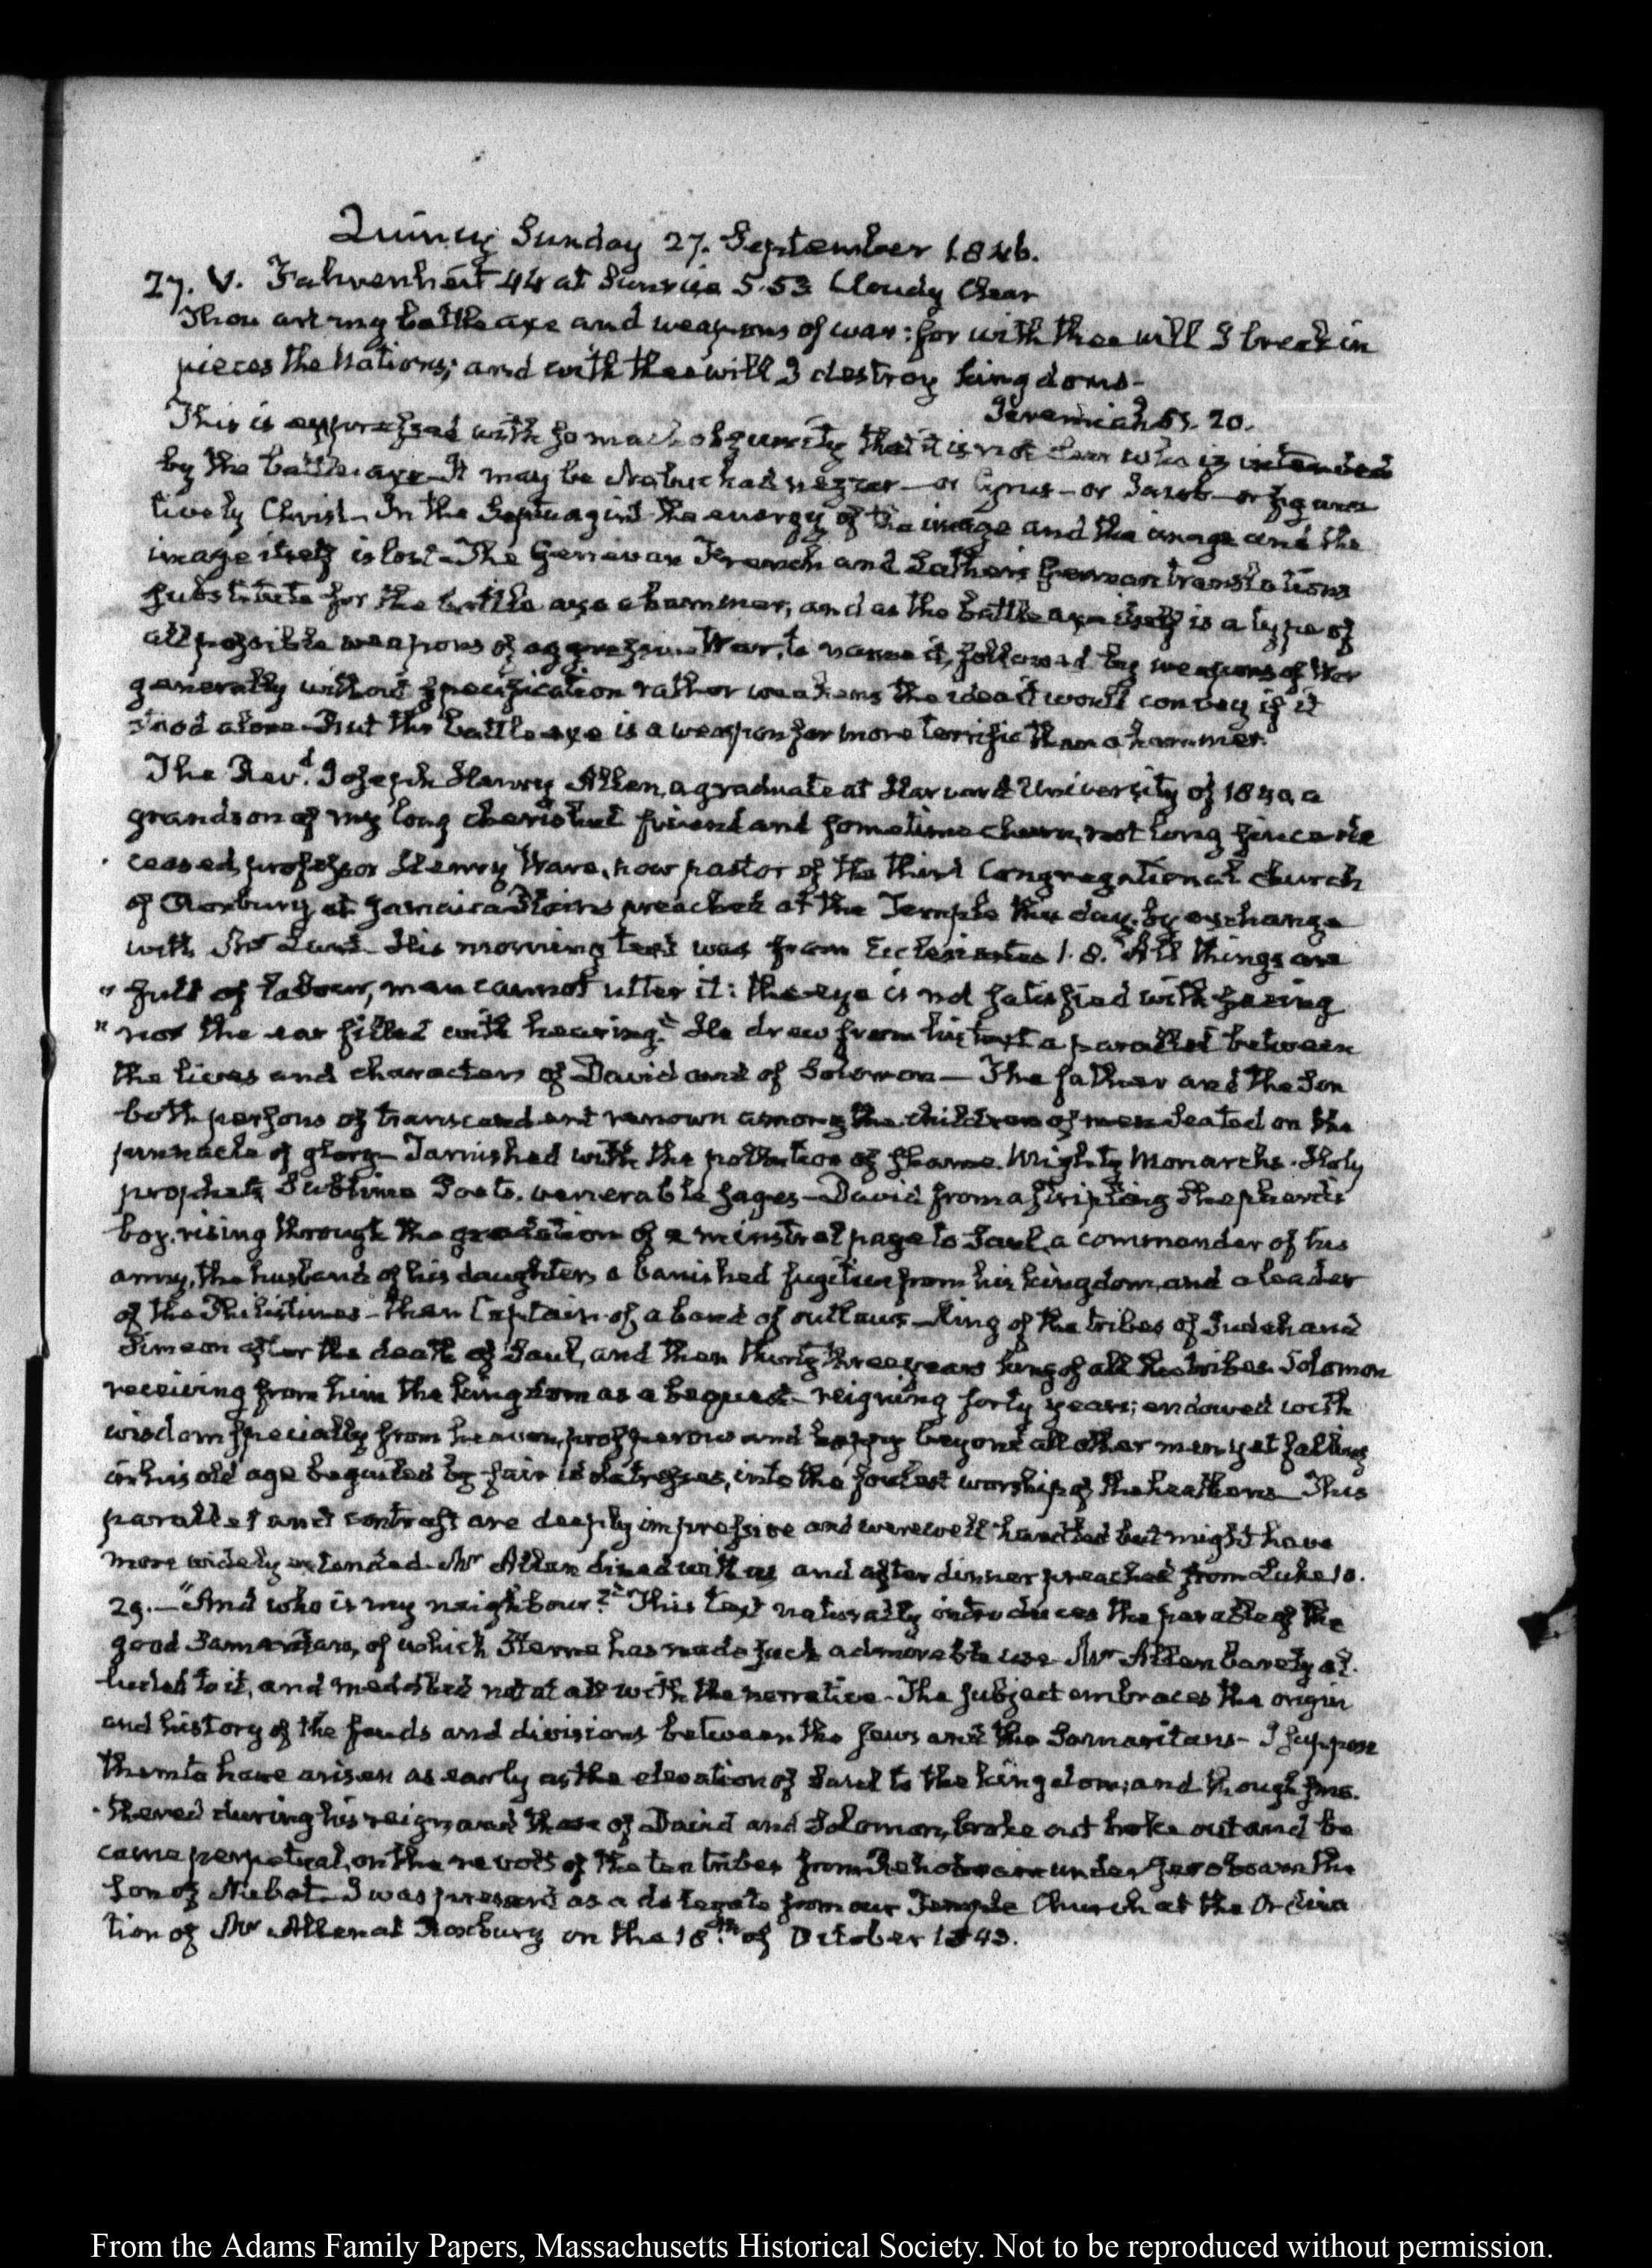 Quincy Sunday 27. September 1846.
27. V. Fahrenheit 44 at Sunrise 5.53 Cloudy Clear
Thou art my battle axe and weapons of war: for with thee will I break in
pieces the Nations; and with thee will I destroy kingdoms-
Jeremiah 51. 20.
This is expressed with so much obscurity that it is not clear who is intended
by the battle axe— It may be Nabuchadnezzar— or Cyrus— or Jacob— or figura
tively Christ— In the Septuagint the energy of the image and the image and the
image itself is lost— The Genevan French and Luthers German translations
substitute for the battle axe a hammer, and as the battle axe itself is a type of
all possible weapons of aggressive War, to name it, followed by weapons of War
generally without specification rather weakens the idea it would convey if it
stood alone— But the battle axe is a weapon far more terrific than a hammer.
The Revd. Joseph Henry Allen, a graduate at Harvard University of 1840, a
grandson of my long cherished friend and sometime chum, not long since de
ceased, professor Henry Ware, now pastor of the third Congregational church
of Roxbury, at Jamaica Plains preached at the Temple this day, by exchange
with Mr Lunt— His morning text was from Ecclesiastes 1. 8. "All things are
" full of labour, man cannot utter it: the eye is not satisfied with seeing
" nor the ear filled with hearing." He drew from his text a parallel between
the lives and characters of David and of Solomon— The father and the Son
both persons of transcendent renown among the children of men seated on the
pinnacle of glory— Tarnished with the pollution of shame. Mighty Monarchs. Holy
prophets, Sublime Poets, venerable sages— David from a stripling Shepherd's
boy, rising through the gradation of a minstrel page to Saul, a commander of his
army, the husband of his daughter, a banished fugitive from his kingdom, and a leader
of the Philistines— then Captain of a band of outlaws— King of the tribes of Judah and
Simeon after the death of Saul, and then thirty three years king of all the tribes. Solomon
receiving from him the kingdom as a bequest— reigning forty years; endowed with
wisdom specially from heaven, prosperous and happy beyond all other men yet falling
in his old age beguiled by fair idolatresses, into the foulest worship of the heathens— This
parallel and contrast are deeply impressive and were well handled but might have
more widely extended. Mr Allen dined with us and after dinner preached from Luke 10.
29.— "And who is my neighbour?" This text naturally introduces the parable of the
good Samaritan, of which Sterne has made such admirable use Mr Allen barely al-
luded to it, and meddled not at all with the narrative. The subject embraces the origin
and history of the feuds and divisions between the Jews and the Samaritans- I suppose
them to have arisen as early as the elevation of Saul to the kingdom; and though smo-
thered during his reign, and those of David and Solomon, broke out broke out and be
came perpetual, on the revolt of the ten tribes from Rehoboam under Jeroboam the
Son of Nebat— I was present as a delegate from our Temple Church at the Ordina
tion of Mr Allen at Roxbury on the 18th. of October 1843.
From the Adams Family Papers, Massachusetts Historical Society. Not to be reproduced without permission.